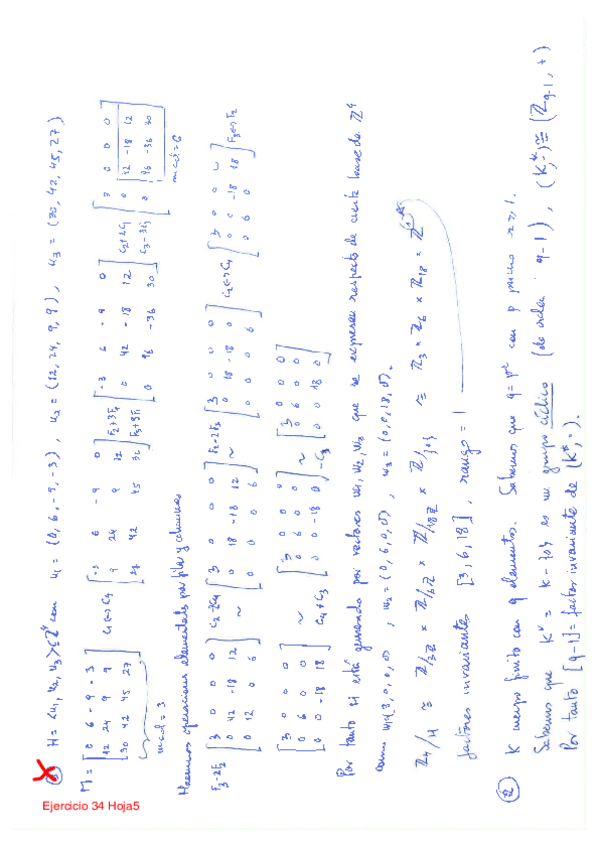 H = <u1, u2, u3> ≤ Z^4 con u1 = (0, 6, -9, -3), u2 = (12, 24, 9, 9), u3 = (30, 42, 45, 27)
M = [0 6 -9 -3; 12 24 9 9; 30 42 45 27] C1↔C4 [-3 6 -9 0; 9 24 9 12; 27 42 45 30] F2+3F1 F3+9F1 [-3 6 -9 0; 0 42 -18 12; 0 96 -36 30] C2+2C1 C3-3C1 [3 0 0 0; 0 42 -18 12; 0 96 -36 30]
mcd = 3
mcd = 6
Hacemos operaciones elementales por filas y columnas
F3-2F2 [3 0 0 0; 0 42 -18 12; 0 12 0 6] C2-2C4 ~ [3 0 0 0; 0 18 -18 12; 0 0 0 6] F2-2F3 ~ [3 0 0 0; 0 18 -18 0; 0 0 0 6] C2↔C4 [3 0 0 0; 0 0 -18 18; 0 6 0 0] F3↔F2
~ [3 0 0 0; 0 6 0 0; 0 0 -18 18] C4+C3 ~ [3 0 0 0; 0 6 0 0; 0 0 -18 0] -C3 ~ [3 0 0 0; 0 6 0 0; 0 0 18 0]
Por tanto H está generado por vectores w1, w2, w3 que se expresan respecto de cierta base de Z^4
como w1(3,0,0,0), w2=(0,6,0,0), w3=(0,0,18,0).
Z4/H ≃ Z/3Z × Z/6Z × Z/18Z × Z/{0} ≃ Z3 × Z6 × Z18 × Z
factores invariantes [3, 6, 18], rango = 1
② K cuerpo finito con q elementos. Sabemos que q = p^r con p primo r ≥ 1.
Sabemos que K* = K-{0} es un grupo cíclico (de orden q-1), (K*, ·) ≅ (Z q-1, +)
Por tanto [q-1] = factor invariante de (K*, ·).
Ejercicio 34 Hoja5